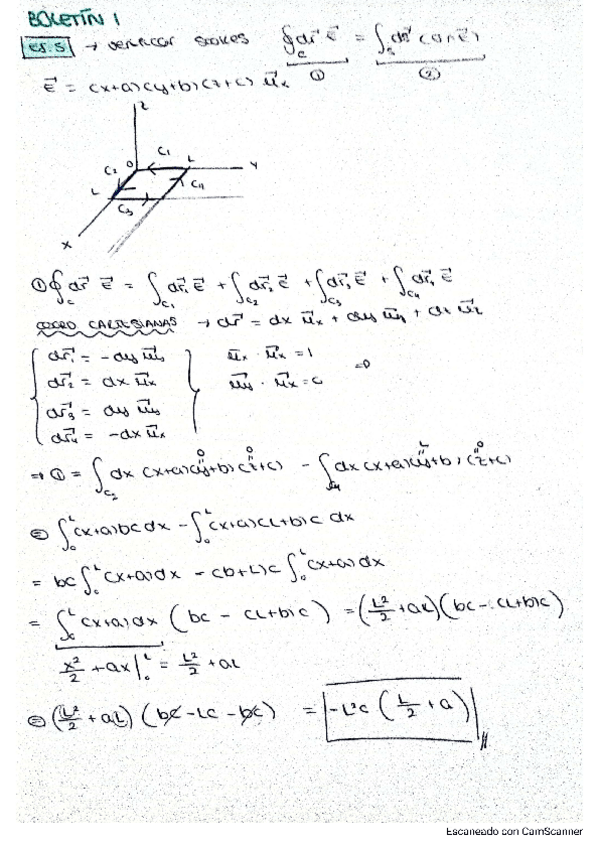 BOLETÍN 1
ej. 5 → verificar Stokes ∮_C dr⃗ E⃗ = ∫_S ds⃗ (∧ E⃗)
① ②
E⃗ = (x+a)(y+b)(z+c) u⃗x
z
C1
C2 O L Y
L C4
C3
X
① ∮_C dr⃗ E⃗ = ∫_C1 dr⃗1 E⃗ + ∫_C2 dr⃗2 E⃗ + ∫_C3 dr⃗3 E⃗ + ∫_C4 dr⃗4 E⃗
COORD CARTESIANAS → dr⃗ = dx u⃗x + dy u⃗y + dz u⃗z
dr⃗1 = -dy u⃗y u⃗x · u⃗x = 1
dr⃗2 = dx u⃗x u⃗y · u⃗x = 0 ⇒
dr⃗3 = dy u⃗y
dr⃗4 = -dx u⃗x
0 0 L 0
⇒ ① = ∫_C2 dx (x+a)(y+b)(z+c) - ∫_C4 dx (x+a)(y+b)(z+c)
= ∫_0^L (x+a)bc dx - ∫_0^L (x+a)(L+b)c dx
= bc ∫_0^L (x+a)dx - (b+L)c ∫_0^L (x+a)dx
= ∫_0^L (x+a)dx (bc - (L+b)c) = (L²/2 + aL)(bc - (L+b)c)
x²/2 + ax |_0^L = L²/2 + aL
= (L²/2 + aL)(bc - Lc - bc) = -L²c (L/2 + a)
Escaneado con CamScanner